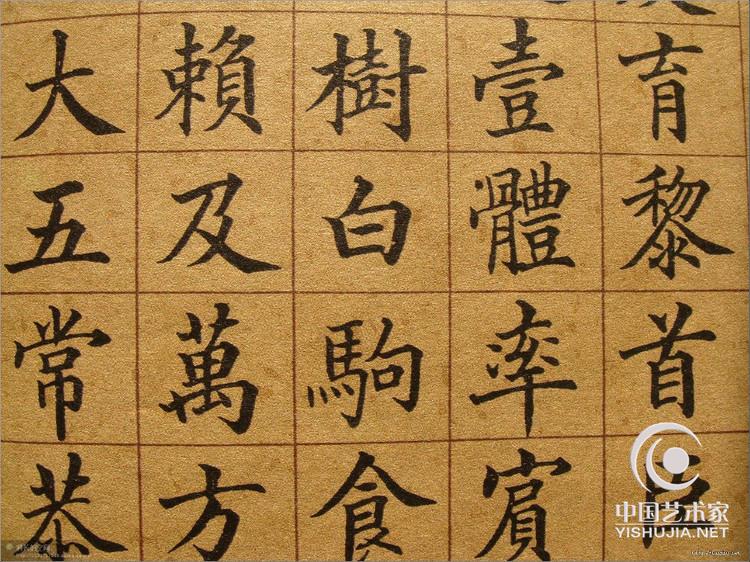 育黎首臣
壹體率賓
樹白駒食
賴及萬方
大五常恭
中国艺术家
YISHUJIA.NET